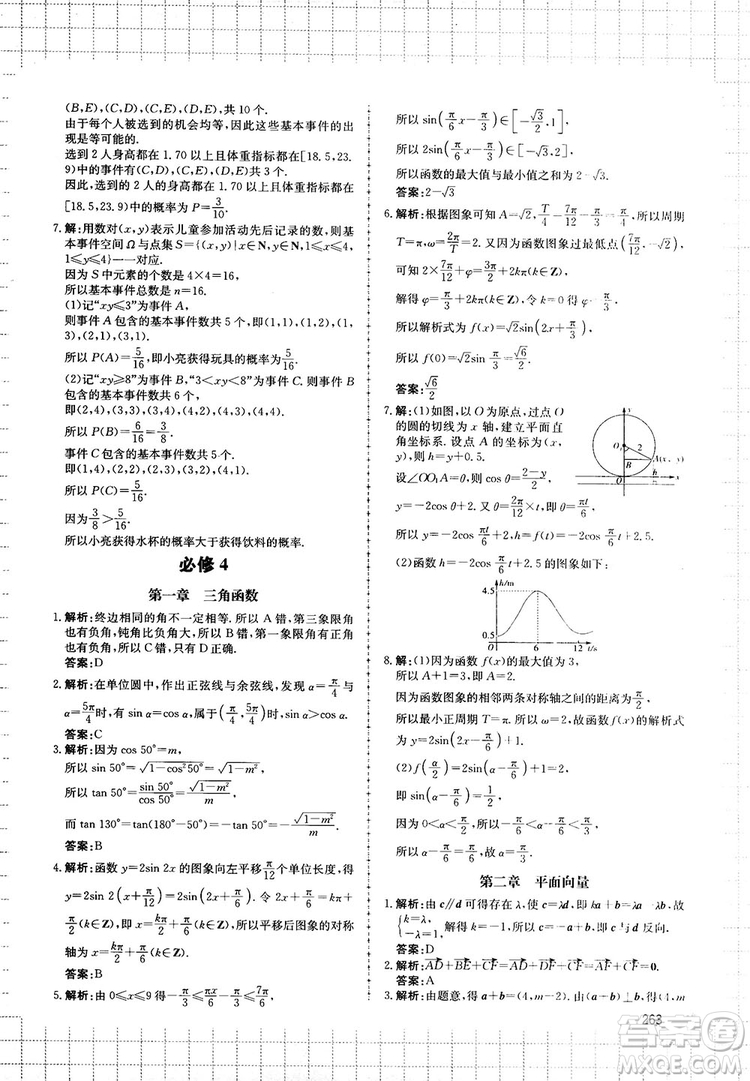 (B,E),(C,D),(C,E),(D,E),共 10 个.
由于每个人被选到的机会均等,因此这些基本事件的出
现是等可能的.
选到 2 人身高都在 1.70 以上且体重指标都在[18.5,23.
9)中的事件有(C,D),(C,E),(D,E),共 3 个.
因此,选到的 2 人的身高都在 1.70 以上且体重指标都在
[18.5,23.9)中的概率为 3/10.
7. 解析:用数对(x,y)表示儿童参加活动先后记录的数,则基
本事件空间 Ω 与点集 S={(x,y)|x∈N,y∈N,1≤x≤4,
1≤y≤4}一一对应.
因为 S 中元素的个数是 4×4=16,
所以基本事件总数是 n=16.
(1)记“xy≤3”为事件 A,
则事件 A 包含的基本事件数共 5 个,即(1,1),(1,2),(1,
3),(2,1),(3,1).
所以 P(A)=5/16,即小亮获得玩具的概率为 5/16.
(2)记“xy≥8”为事件 B,“3<xy<8”为事件 C.则事件 B
包含的基本事件数共 6 个,
即(2,4),(3,3),(3,4),(4,2),(4,3),(4,4).
所以 P(B)=6/16=3/8.
事件 C 包含的基本事件数共 5 个,
即(1,4),(2,2),(2,3),(3,2),(4,1).
所以 P(C)=5/16.
因为 3/8>5/16,
所以小亮获得水杯的概率大于获得饮料的概率.
必修 4
第一章 三角函数
1. 解析:终边相同的角不一定相等.所以 A 错,第三象限角
也有负角,钝角比负角大.所以 B 错,第一象限角有正角
也有负角,所以 C 错,只有 D 正确.
答案:D
2. 解析:在单位圆中,作出正弦线与余弦线,发现:α=π/4与
α=5π/4时,有 sin α=cos α,属于(π/4,5π/4)时,sin α>cos α.
答案:C
3. 解析:因为 cos 50°=m,
所以 sin 50°=√(1-cos²50°)=√(1-m²).
所以 tan 50°=sin 50°/cos 50°=√(1-m²)/m,
而 tan 130°=tan(180°-50°)=-tan 50°=-√(1-m²)/m.
答案:B
4. 解析:函数 y=2sin 2x 的图象向左平移π/12个单位长度,得
y=2sin 2(x+π/12)=2sin(2x+π/6),由 2x+π/6=kπ+
π/2(k∈Z)得 x=kπ/2+π/6(k∈Z),所以平移后图象的对称
轴为 x=kπ/2+π/6(k∈Z).
答案:B
5. 解析:由 0≤x≤9 得-π/3≤π/6x-π/3≤7π/6,
所以 sin(π/6x-π/3)∈[-√3/2,1].
所以 2sin(π/6x-π/3)∈[-√3,2].
所以函数的最大值与最小值之和为 2-√3.
答案:2-√3
6. 解析:根据图象可知 A=√2,T/4=7π/12-π/3=π/4,所以周期
T=π,ω=2π/T=2.又因为函数图象过最低点(7π/12,-√2),
可知 2×7π/12+φ=3π/2+2kπ(k∈Z),
解得 φ=π/3+2kπ(k∈Z),令 k=0 可得 φ=π/3,
所以解析式为 f(x)=√2sin(2x+π/3),
所以 f(0)=√2sin π/3=√6/2.
答案:√6/2
7. 解:(1)如图,以 O 为原点,过点 O
的圆的切线为 x 轴,建立平面直
角坐标系.设点 A 的坐标为(x,
y),则 h=y+0.5.
设∠OO₁A=θ,则 cos θ=(2-y)/2,
y=-2cos θ+2,又 θ=2π/12·t=πt/6,
所以 y=-2cos πt/6+2,h=f(t)=-2cos πt/6+2.5.
y
O₁
2
A(x,y)
B
h
O
x
(2)函数 h=-2cos πt/6+2.5 的图象如下:
h/m
4.5
0.5
O
6
12
t/s
8. 解:(1)因为函数 f(x)的最大值为 3,
所以 A+1=3,即 A=2.
因为函数图象的相邻两条对称轴之间的距离为π/2,
所以最小正周期 T=π.所以 ω=2,故函数 f(x)的解析式
为 y=2sin(2x-π/6)+1.
(2)f(α/2)=2sin(α-π/6)+1=2,
即 sin(α-π/6)=1/2.
因为 0<α<π/2,所以-π/6<α-π/6<π/3.
所以 α-π/6=π/6,故 α=π/3.
第二章 平面向量
1. 解析:由 c∥d 可得存在 λ,使 c=λd,即 ka+b=λa-λb.故
{k=λ,-λ=1.解得 k=-1,所以 c=-a+b,即 c 与 d 反向.
答案:D
2. 解析:AD+BE+CF=AD+DF+CF=AF+CF=0.
答案:A
3. 解析:由题意,得 a+b=(4,m-2),因为(a+b)⊥b,所以
263
答案圈
MXQE.COM